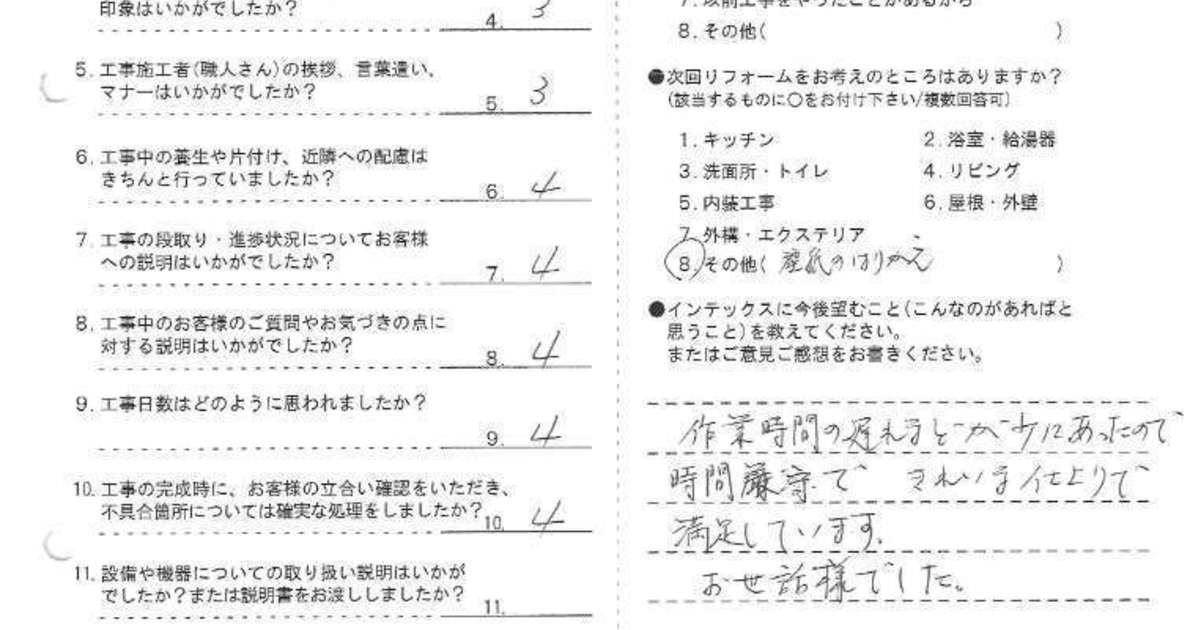 印象はいかがでしたか？
4. 3
5. 工事施工者(職人さん)の挨拶、言葉遣い、
マナーはいかがでしたか？
5. 3
6. 工事中の養生や片付け、近隣への配慮は
きちんと行っていましたか？
6. 4
7. 工事の段取り・進捗状況についてお客様
への説明はいかがでしたか？
7. 4
8. 工事中のお客様のご質問やお気づきの点に
対する説明はいかがでしたか？
8. 4
9. 工事日数はどのように思われましたか？
9. 4
10. 工事の完成時に、お客様の立合い確認をいただき、
不具合箇所については確実な処理をしましたか？
10. 4
11. 設備や機器についての取り扱い説明はいかが
でしたか？または説明書をお渡ししましたか？
11.
7. 以前工事をやったことがあるから
8. その他( )
●次回リフォームをお考えのところはありますか？
(該当するものに○をお付け下さい/複数回答可)
1. キッチン 2. 浴室・給湯器
3. 洗面所・トイレ 4. リビング
5. 内装工事 6. 屋根・外壁
7. 外構・エクステリア
8. その他( 壁紙のはりかえ )
●インテックスに今後望むこと(こんなのがあればと
思うこと)を教えてください。
またはご意見ご感想をお書きください。
作業時間の遅れなどが少にあったので
時間厳守で きれいな仕上りで
満足しています。
お世話様でした。